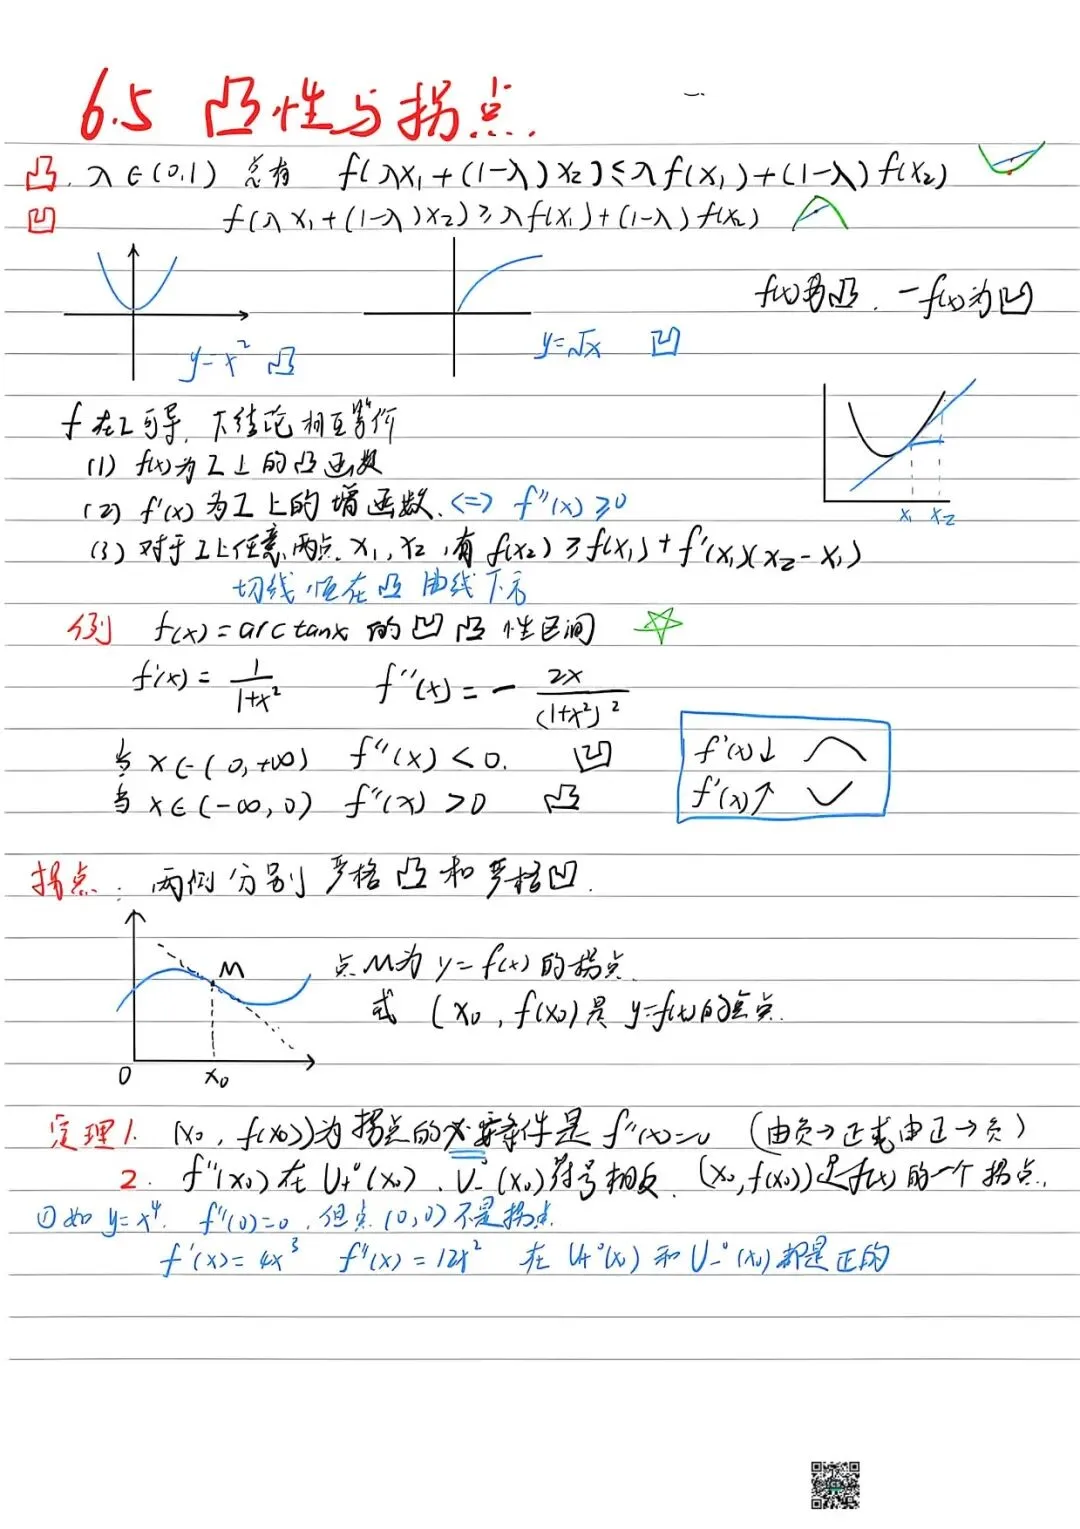 6.5 凸性与拐点.
凸. λ∈(0,1) 总有 f(λx₁+(1-λ)x₂)≤λf(x₁)+(1-λ)f(x₂)
凹 f(λx₁+(1-λ)x₂)≥λf(x₁)+(1-λ)f(x₂)
f(x)为凸. -f(x)为凹
y=x² 凸
y=√x 凹
f在I可导, 下结论相互等价
(1) f(x)为I上的凸函数
(2) f'(x)为I上的增函数. <=> f''(x)≥0
(3) 对于I上任意两点x₁,x₂,有f(x₂)≥f(x₁)+f'(x₁)(x₂-x₁)
x₁ x₂
切线恒在凸曲线下方
例 f(x)=arctanx的凹凸性区间
f'(x)=1/(1+x²) f''(x)=-2x/(1+x²)²
当x∈(0,+∞) f''(x)<0. 凹
当x∈(-∞,0) f''(x)>0 凸
f'(x)↓
f'(x)↑
拐点: 两侧分别严格凸和严格凹.
M
0 x₀
点M为y=f(x)的拐点.
或 (x₀,f(x₀)是y=f(x)的点.
定理1. (x₀,f(x₀))为拐点的必要条件是f''(x)=0 (由负→正或由正→负)
2. f''(x₀)在U₊°(x₀), U₋°(x₀)符号相反. (x₀,f(x₀))是f(x)的一个拐点.
①如y=x⁴. f''(0)=0, 但点(0,0)不是拐点.
f'(x)=4x³ f''(x)=12x² 在U₊°(x₀)和U₋°(x₀)都是正的